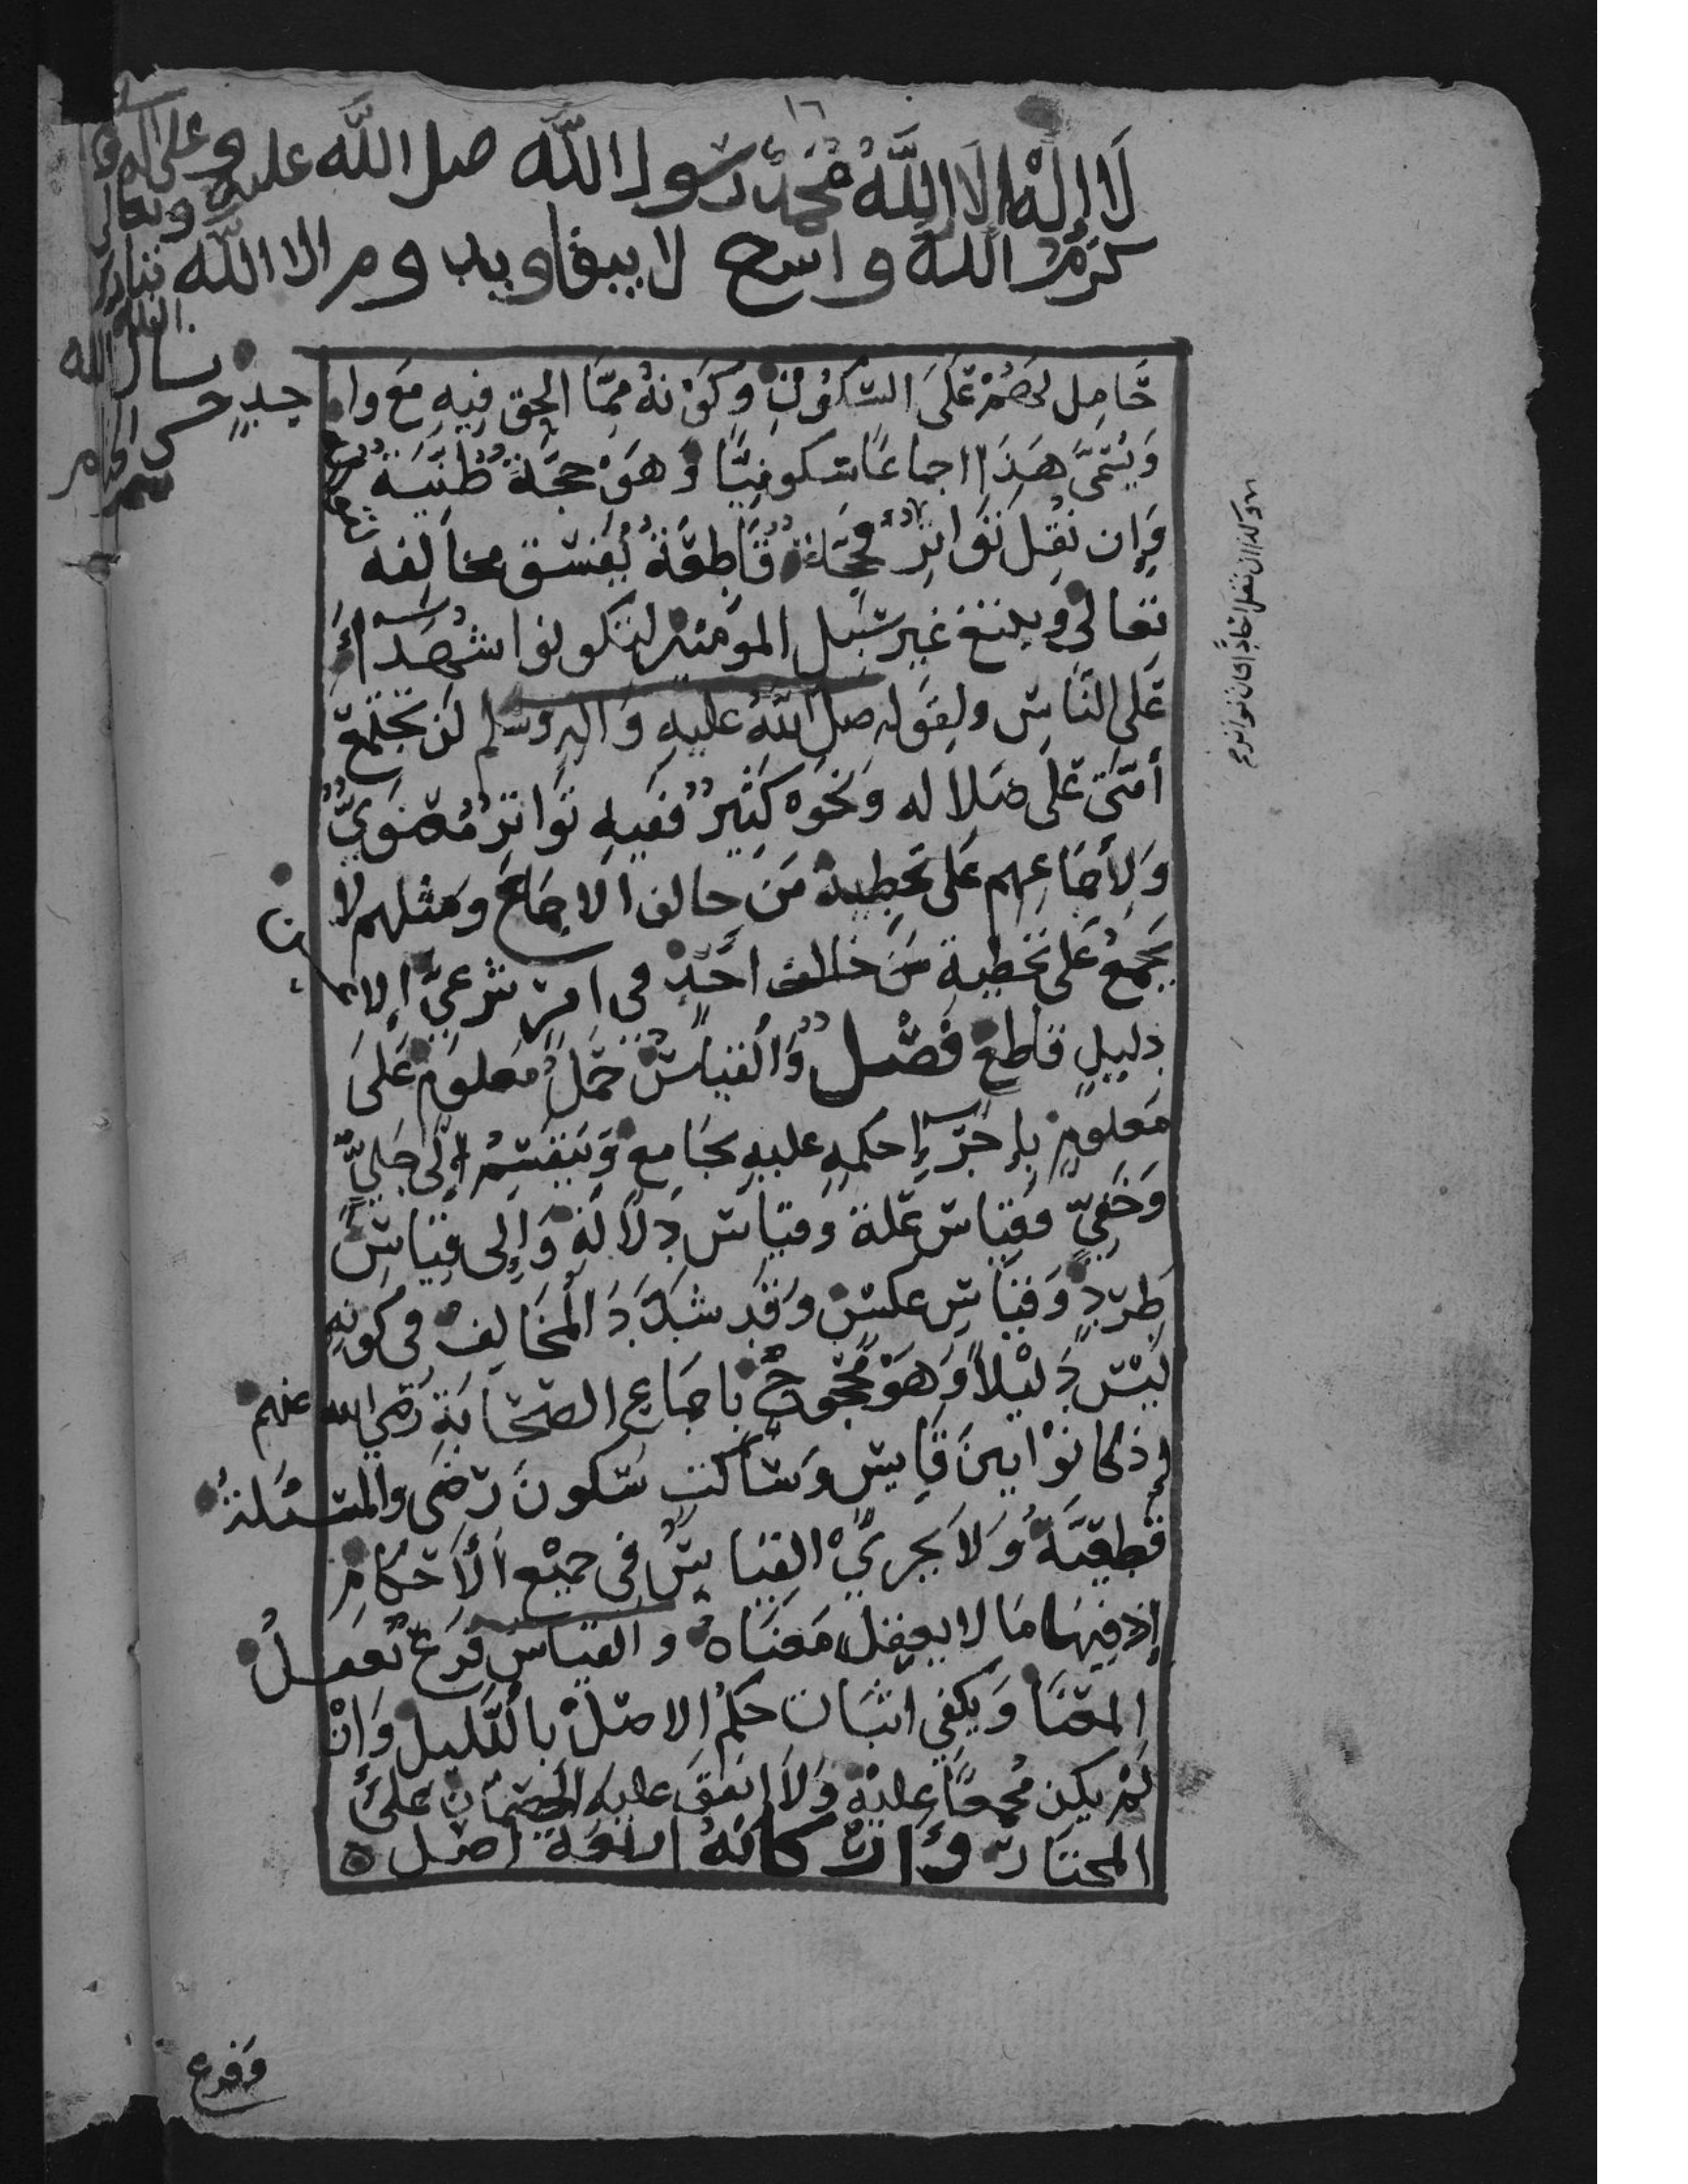 ١٦
لَا إِلٰهَ إِلَّا اللَّهُ مُحَمَّدٌ رَسُولُ اللَّه صل اللَّه عليه وعلى اله
كرم اللَّه واسع لا يبقا ويدوم الا اللَّه
حَامِل لهم عَلَى السكُوتِ وَكَوْنهُ مِمَّا الحق فِيهِ مَعَ وا جِدٍ
وَيُسَمَّى هَذَا اجماعًا سكوتِيًّا وَهوَ حجَّةٌ ظَنِّيَةٌ
فَإِن نُقِلَ تَوَاترًا فحجَّةٌ قَاطِعَةٌ يُفَسَّق مخالِفه
تعالى ويتبع غير سَبيل المؤمنين لتكونوا شُهَدَاءَ
عَلى النَّاسِ ولقوله صلى اللَّهُ عليهِ وَاله وسلم لن تجتمع
أُمَّتِي عَلَى ضلاله وَنحوه كَثِيرٌ ففيهِ تَوَاترٌ مَعْنَوِيٌّ
وَلإجماعِهِم عَلى تخطِيةِ مَن خالف الاجماعَ ومثلهم لا
يجمعُ عَلَى تخطيةِ مَن خالف احَدٍ في امرٍ شرعِيٍّ إلا عن
دليلٍ قاطعٍ فَصْل وَالقياسُ حَمْلُ مَعلومٍ عَلَى
مَعلومٍ بإجرَاءِ حكمهِ عليهِ بجَامعٍ وَينقسِمُ إلى جَلِيٍّ
وَخَفِيٍّ وقِيَاس عِلّة وقيَاس دِلَالَةٍ وَإِلى قِيَاسِ
طردٍ وَقيَاسِ عكسٍ وَقَد شذَّ المُخَالِف في كونهِ
لَيْسَ دَلِيْلًا وَهوَ مَحْجُوجٌ باجماعِ الصحَابَةِ رَضي الله عنهم
إذ كانوْا بينَ قَايسٍ وَسَاكتٍ سكوتَ رضى والمسئلةُ
قطعِيّةٌ وَلَا يجريْ القياسُ في جميْعِ الْأَحْكامِ
إذ فيهَا مَا لا يعقل مَعنَاهُ والقياسُ فرعُ تعقلُ
المعنَا وَيكفي اثبات حكمُ الاصل بالدَّليل وَإنْ
لَمْ يكن مُجمعًا عليْهِ وَلَا اتفقَ عليهِ الخصمانِ علىَ
المختار وَارْكَانهُ اربعَة اصل
وكذا ان نقل احادًا او كان تواتره
وَفرع